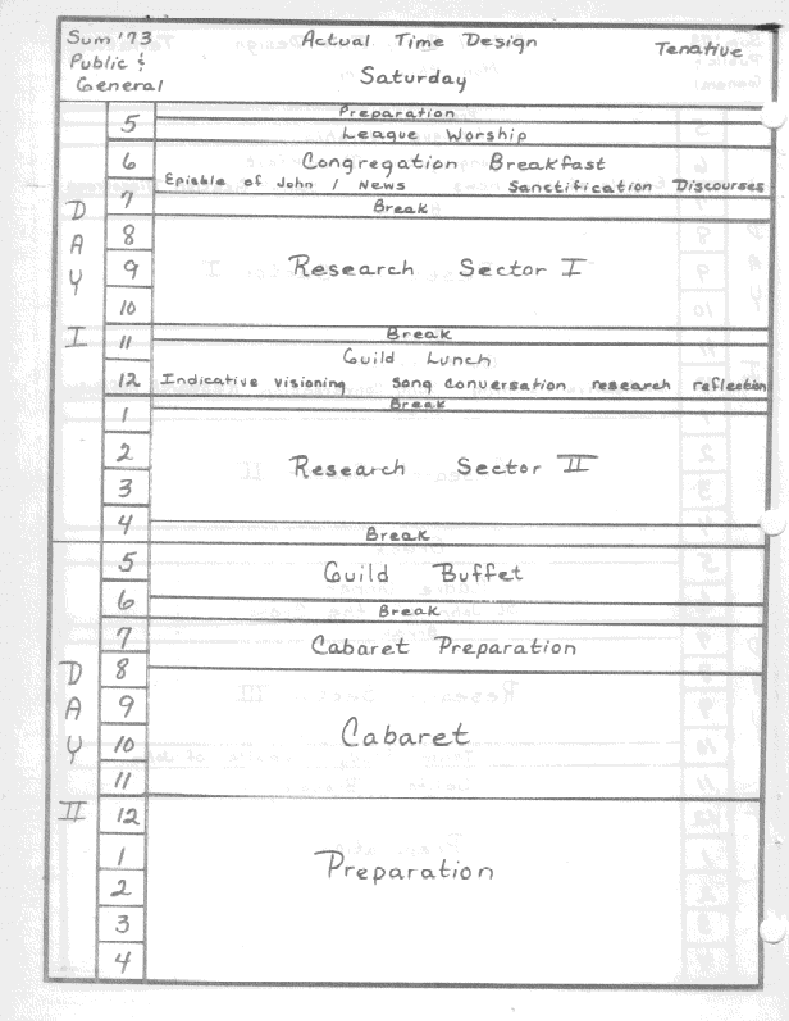 Sum '73 Actual Time Design Tenative
Public &
General Saturday
Preparation
5
League Worship
6 Congregation Breakfast
Epistle of John / News Sanctification Discourses
7 Break
DAY I
8
9 Research Sector I
10
11 Break
Guild Lunch
12 Indicative visioning song conversation research reflection
Break
1
2 Research Sector II
3
4
Break
5 Guild Buffet
6 Break
7 Cabaret Preparation
DAY II
8
9
10 Cabaret
11
12
1 Preparation
2
3
4